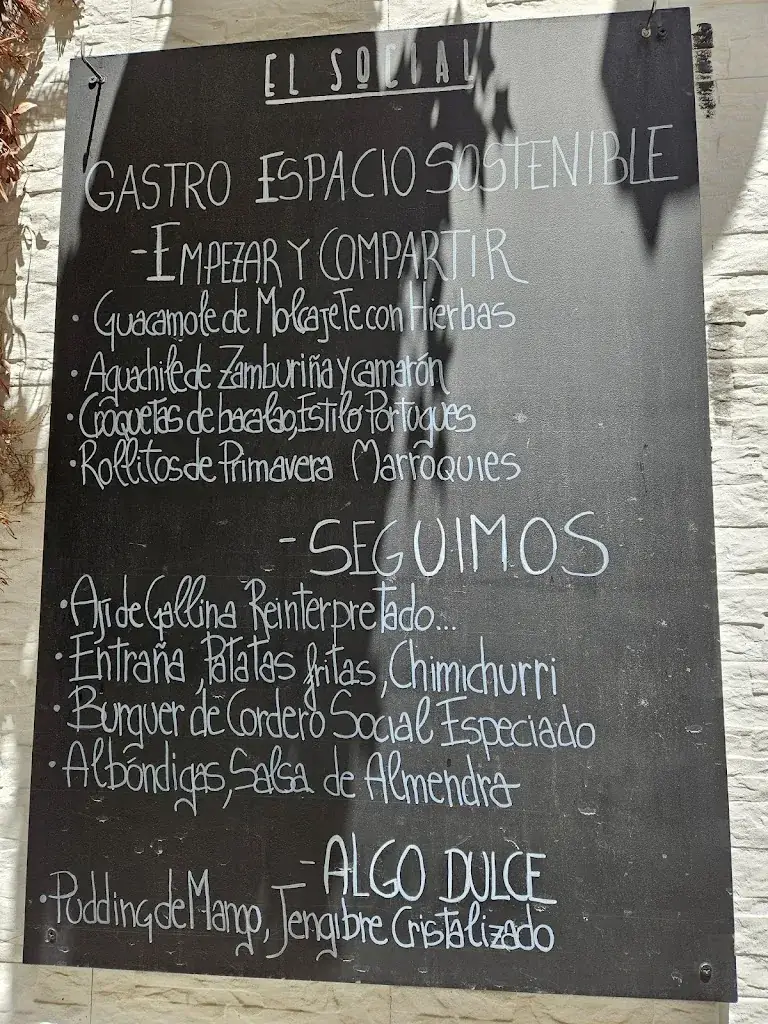 EL SOCIAL
GASTRO ESPACIO SOSTENIBLE
-EMPEZAR Y COMPARTIR
• Guacamole de Molcajete con Hierbas
• Aguachile de Zamburiña y camarón
• Croquetas de bacalao, Estilo Portugues
• Rollitos de Primavera Marroquies
- SEGUIMOS
• Aji de Gallina Reinterpretado...
• Entraña, Patatas fritas, Chimichurri
• Burguer de Cordero Social Especiado
• Albóndigas, Salsa de Almendra
- ALGO DULCE
• Pudding de Mango, Jengibre Cristalizado